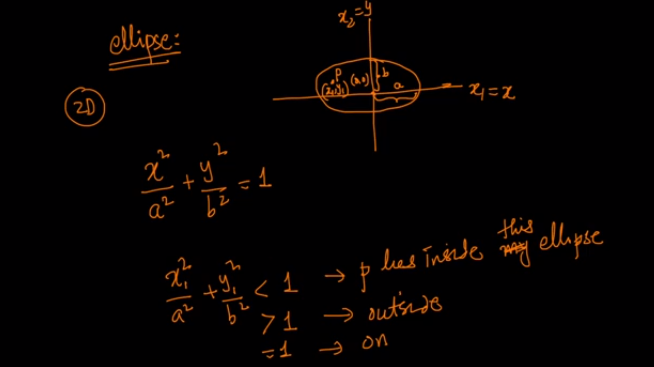 ellipse:
2D
x₂=y
P
(x₁,y₁) (0,0) b
a
x₁=x
x²/a² + y²/b² = 1
x₁²/a² + y₁²/b² < 1 → p lies inside this ellipse
>1 → outside
=1 → on